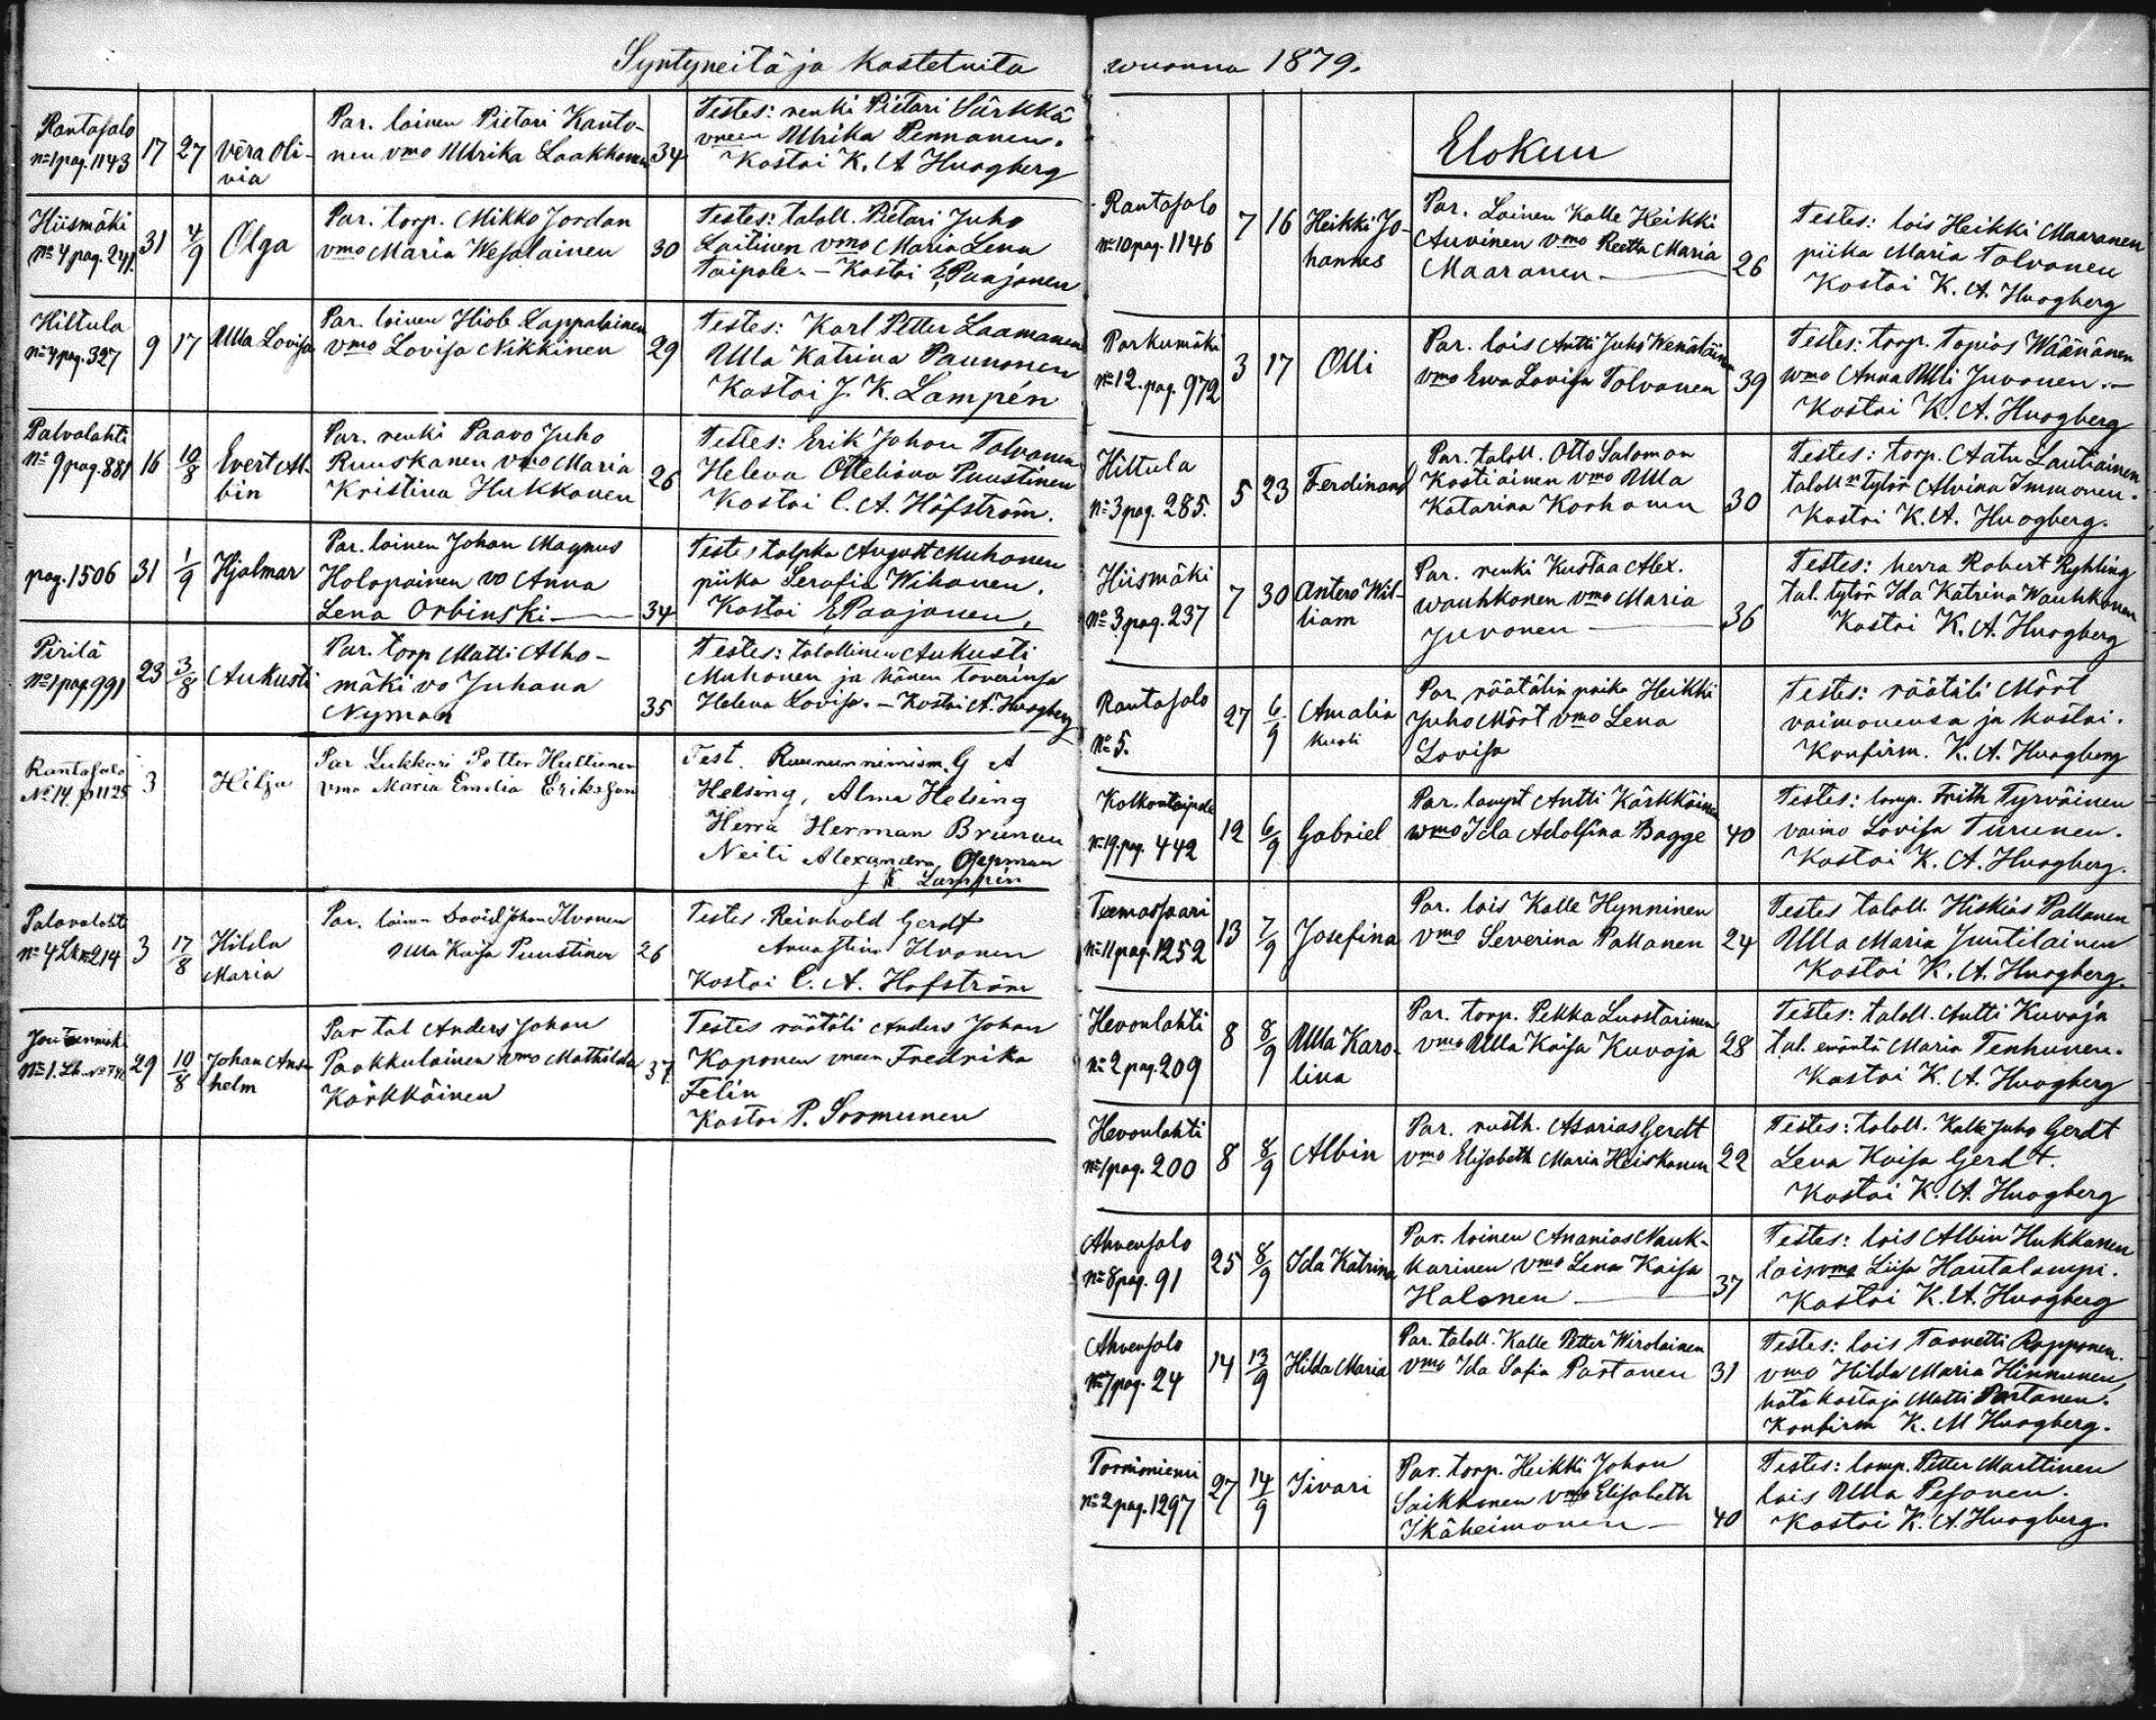 Syntyneitä ja kastetuita
Rantasalo
No 1 pag. 1143
17
27
Vēra Oli-
via
Par. loinen Pietari Kanto-
nen vmo Ulrika Laakkonen
34
Testes: renki Pietari Särkkä
vneen Ulrika Pennanen.
Kastoi K. A. Huogberg
Hiismäki
No 4 pag. 241.
31
4/9
Olga
Par. torp. Mikko Jordan
vmo Maria Wesalainen
30
Testes: taloll. Pietari Juho
Laitinen vmo Maria Lena
Taipale. – Kastoi E. Paajanen
Hiltula
No 4 pag. 327
9
17
Ulla Lovisa
Par. loinen Hiob Lappalainen
vmo Lovisa Nikkinen
29
Testes: Karl Petter Laamanen
Ulla Katrina Paunonen
Kastoi J. K. Lampén
Palvalahti
No 9 pag. 881
16
10/8
Evert Al-
bin
Par. renki Paavo Juho
Ruuskanen vmo Maria
Kristina Hukkanen
26
Testes: Erik Johan Tolvanen
Helena Otteliana Puustinen
Kastoi C. A. Höfström.
pag. 1506
31
1/9
Hjalmar
Par. loinen Johan Magnus
Holopainen vo Anna
Lena Orbinski —
34
Testes talpka August Muhonen
piika Serafia Wihanen.
Kastoi E. Paajanen,
Pirilä
No 1 pag 991
23
3/8
Aukusti
Par. torp Matti Alho-
mäki vo Juhana
Nyman
35
Testes: talollinen Aukusti
Muhonen ja hänen toverinsa
Helena Lovisa. – Kastoi A. Huogberg
Rantasalo
No 14. p 1125
3
Hilja
Par Lukkari Petter Hultinen
vmo Maria Emilia Eriksson
Test. Ruununnimism. G A
Helsing, Alma Helsing
Herra Herman Brunou
Neiti Alexandra
J K Lampén
Palovalahti
No 4 Lk no 214
3
17/8
Hilda
Maria
Par. loinen David Johan Ilvonen
Ulla Kaisa Puustinen
26
Testes Reinhold Gerdt
Anna Stina Ilvonen
Kastoi C. A. Hofström
29
10/8
Johan Ans-
helm
Par tal Anders Johan
Paakkulainen vmo Mathilda
Kärkkäinen
37.
Testes räätäli Anders Johan
Kaponen vneen Fredrika
Felin
Kastoi P. Sormunen
wuonna 1879.
Elokuu
Rantasalo
No 10 pag. 1146
7
16
Heikki Jo-
hannes
Par. Loinen Kalle Heikki
Auvinen vmo Reetta Maria
Maaranen —
26
Testes: lois Heikki Maaranen
piika Maria Tolvanen
Kastoi K. A. Huogberg
Parkumäki
No 12. pag. 972
3
17
Olli
Par. lois Antti Juho Wenäläinen
vmo Ewa Lovisa Tolvanen
39
Testes: torp. Topias Wäänänen
wmo Anna Ulli Juvonen. –
Kastoi K. A. Huogberg
Hiltula
No 3 pag. 285.
5
23
Ferdinand
Par. taloll. Otto Salomon
Kostiainen vmo Ulla
Katarina Korhonen
30
Testes: torp. Aatu Lautiainen
taloll n tytär Alvina Immonen.
Kastoi K. A. Huogberg.
Hiismäki
No 3 pag. 237
7
30
Antero Wil-
liam
Par. renki Kustaa Alex.
Wauhkonen vmo Maria
Juvonen —
36
Testes: herra Robert Ryhling
tal. tytär Ida Katrina Wauhkonen
Kastoi K. A. Huogberg
Rantasalo
No 5.
27
6/9
Amalia
kuoli
Par. räätälin poika Heikki
Juho Mört vmo Lena
Lovisa
Testes: räätäli Mört
vaimonensa ja kastoi.
Konfirm. K. A. Huogberg
Kolkontaipale
No 19. pag. 442
12
6/9
Gabriel
Par. lampt Antti Kärkkäinen
wmo Ida Adolfina Bagge
40
Testes: lamp. Frith Tyrväinen
vaimo Lovisa Turunen.
Kastoi K. A. Huogberg.
Teemassaari
No 11 pag. 1252
13
7/9
Josefina
Par. lois Kalle Hynninen
vmo Severina Pallanen
24
Testes taloll. Hiskias Pallanen
Ulla Maria Juutilainen
Kastoi K. A. Huogberg.
Hevonlahti
No 2 pag. 209
8
8/9
Ulla Karo-
lina
Par. torp. Pekka Luostarinen
vmo Ulla Kaisa Kuvaja
28
Testes: taloll. Antti Kuvaja
tal. emäntä Maria Tenhunen.
Kastoi K. A. Huogberg
Hevonlahti
No 1 pag. 200
8
8/9
Albin
Par. rusth. Asarias Gerdt
vmo Elisabeth Maria Heiskanen
22
Testes: taloll. Kalle Juho Gerdt
Lena Kaisa Gerdt.
Kastoi K. A. Huogberg
Ahvensalo
No 8 pag. 91
25
8/9
Ida Katrina
Par. loinen Ananias Nauk-
karinen vmo Lena Kaisa
Halonen —
37
Testes: lois Albin Hukkanen
lois vmo Liisa Hautalampi.
Kastoi K. A. Huogberg
Ahvensalo
No 7 pag. 24
14
13/9
Hilda Maria
Par. taloll. Kalle Petter Wirolainen
vmo Ida Sofia Partanen
31
Testes: lois Taavetti Ropponen.
vmo Hilda Maria Hinnunen,
hätäkastaja Matti Partanen.
Konfirm K. M Huogberg.
Tornioniemi
No 2 pag. 1297
27
14/9
Iivari
Par. torp. Heikki Johan
Saikkonen vmo Elisabeth
Ikäheimonen —
40
Testes: lamp. Petter Marttinen
lois Ulla Pesonen.
Kastoi K. A. Huogberg.